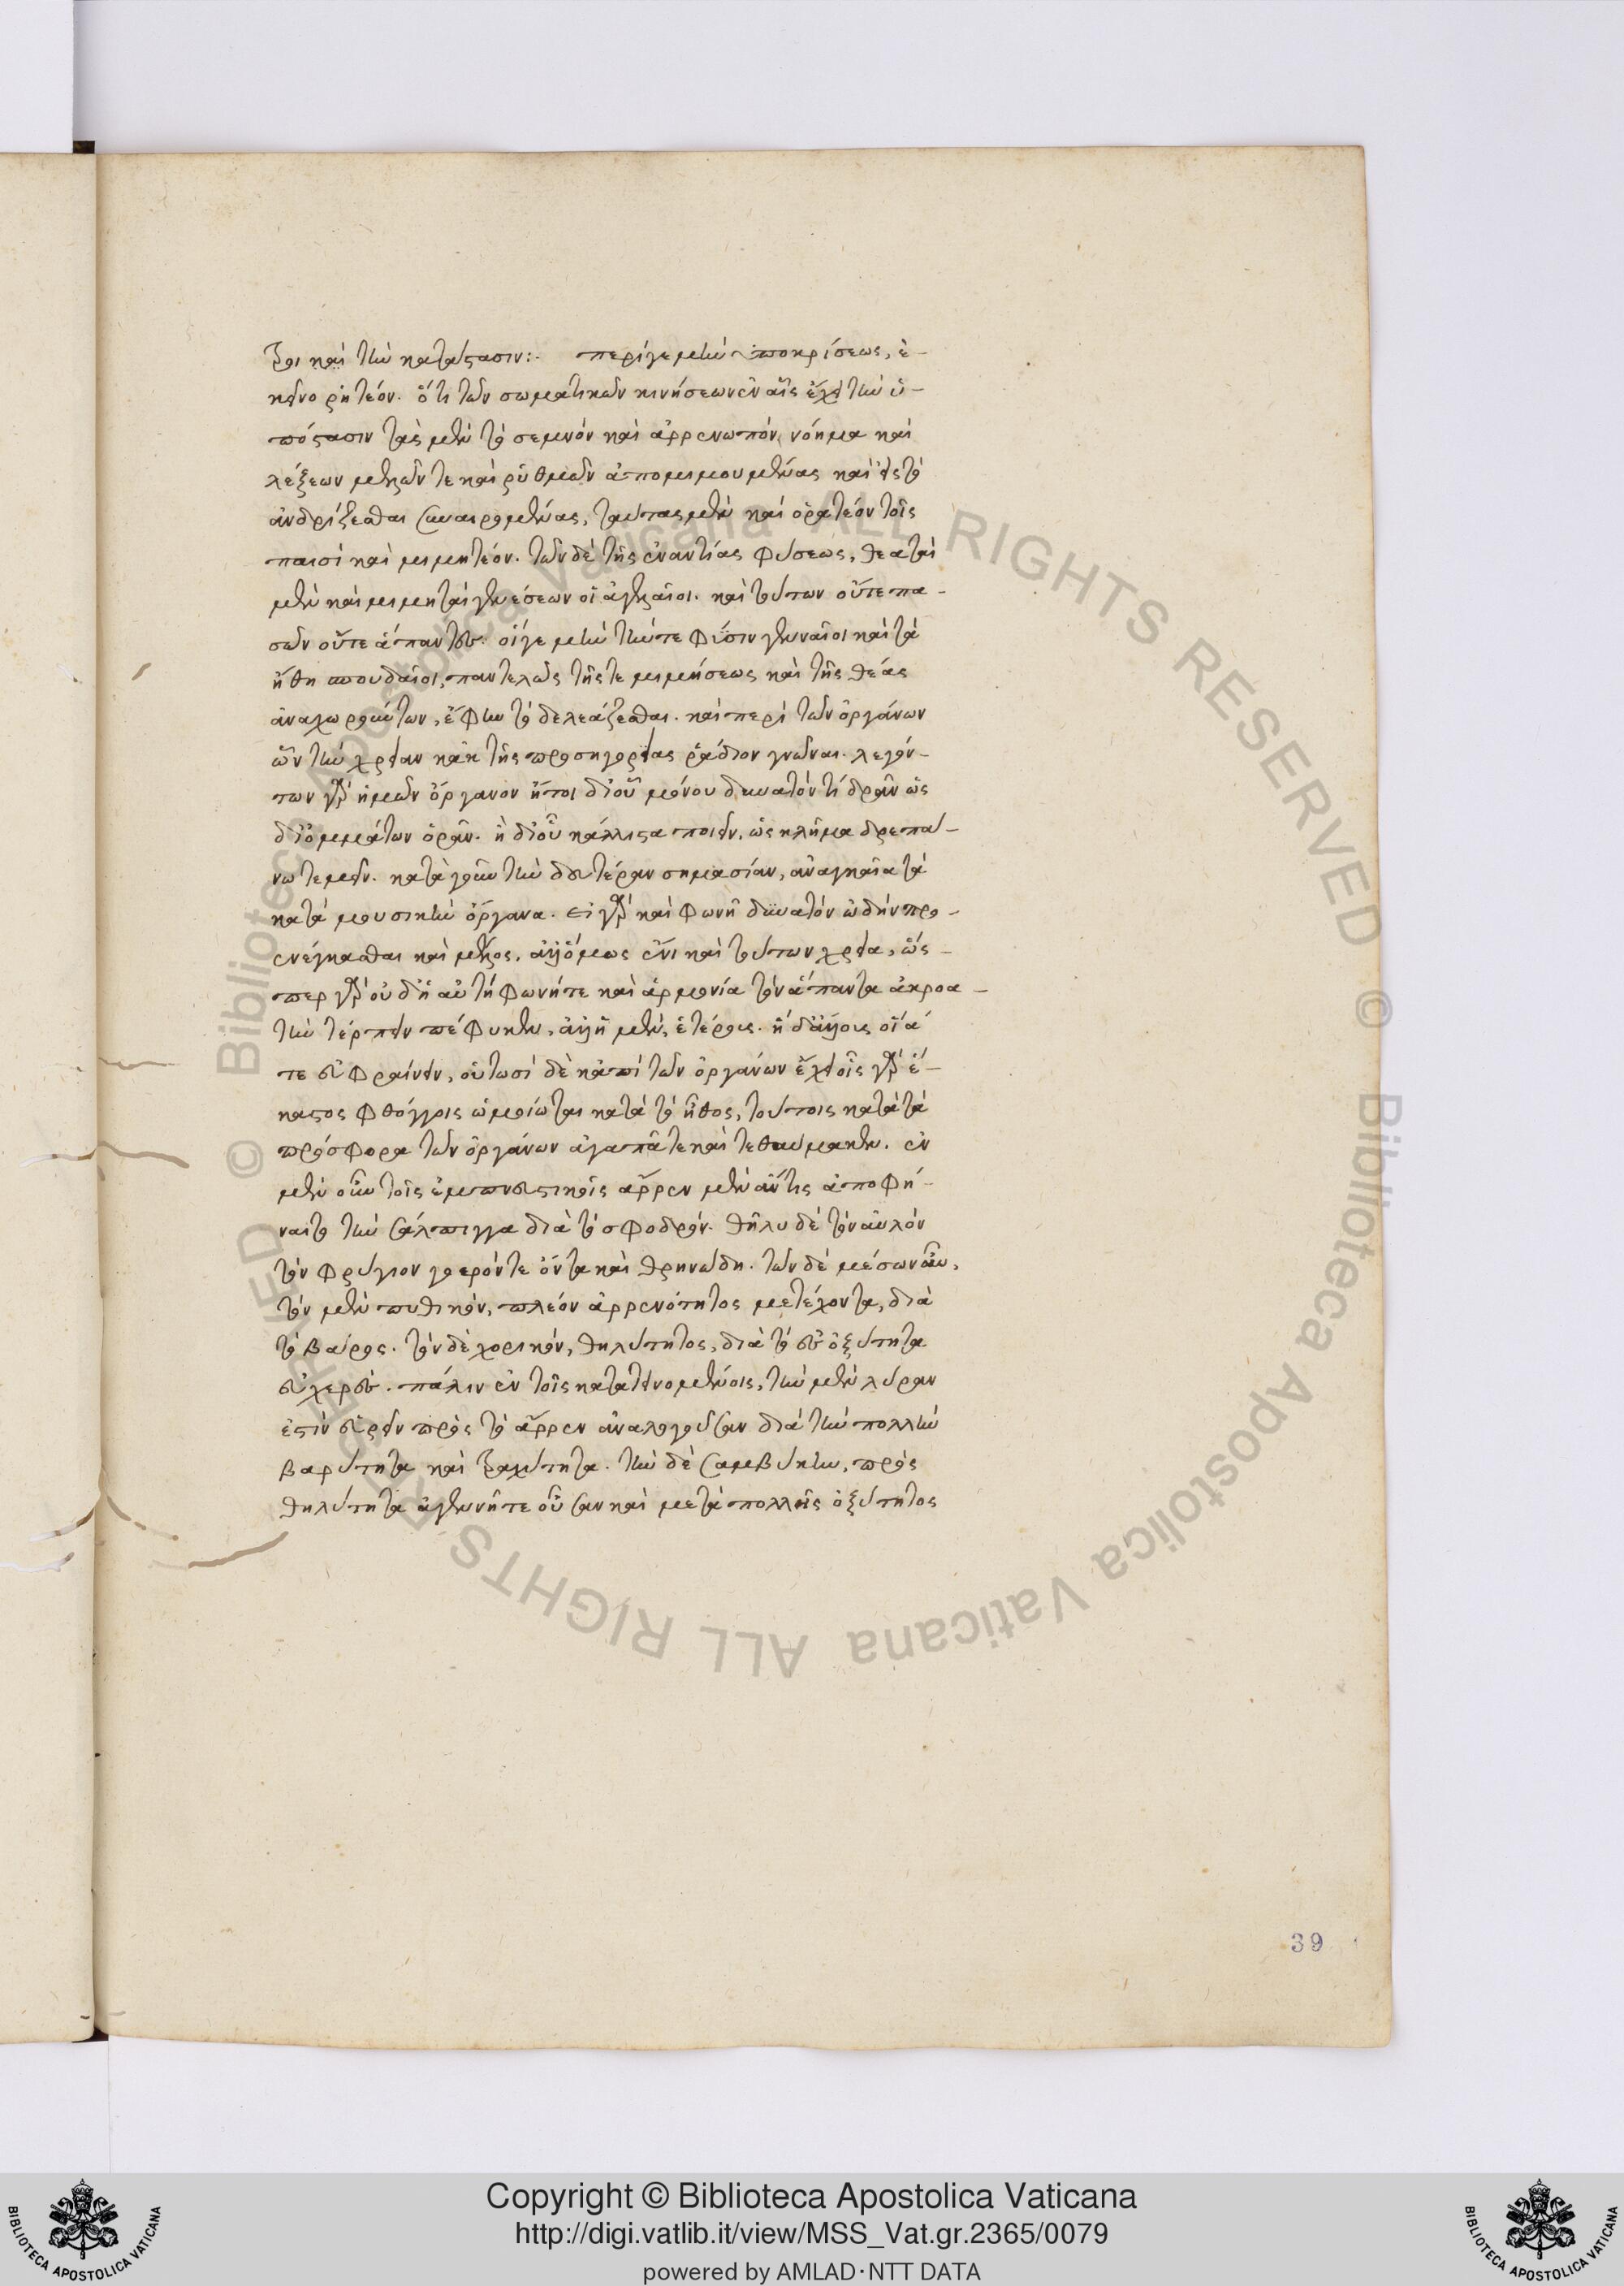 ζοι καὶ τὴν κατάστασιν:· περίγε μὴν ὑποκρίσεως, ἐ-
κεῖνο ῥητέον. ὅτι τῶν σωματικῶν κινήσεων ἐν αἷς ἔχει τὴν ὑ-
πόστασιν τὰς μὲν τὸ σεμνὸν καὶ ἀρρενωπὸν νόημα καὶ
λέξεων μελῶν τε καὶ ῥυθμῶν ἀπομιμουμένας καὶ εἰς τὸ
ἀνδρίζεσθαι συναιρομένας, ταύτας μὲν καὶ ὁρατέον τοῖς
παισὶ καὶ μιμητέον. τῶν δὲ τῆς ἐναντίας φύσεως, θεαταὶ
μὲν καὶ μιμηταὶ γενέσεων οἱ ἀγελαῖοι. καὶ τούτων οὔτε πα-
σῶν οὔτε ἅπαντες. οἵγε μὴν τήντε φύσιν γενναῖοι καὶ τὰ
ἤθη σπουδαῖοι, παντελῶς τῆς τε μιμήσεως καὶ τῆς θέας
ἀναχωρούντων, ἔφην τὸ δελεάζεσθαι. καὶ περὶ τῶν ὀργάνων
ὧν τὴν χρείαν κἀκ τῆς προσηγορίας ῥάδιον γνῶναι. λεγόν-
των γὰρ ἡμῶν ὄργανον ἤτοι δι' οὗ μόνου δυνατόν τι δρᾶν ὡς
δι' ὀμμάτων ὁρᾶν. ἢ δι' οὗ κάλλιστα ποιεῖν, ὡς κλῆμα δρεπά-
νῳ τεμεῖν. κατὰ γοῦν τὴν δευτέραν σημασίαν, ἀναγκαῖα τὰ
κατὰ μουσικὴν ὄργανα. εἰ γὰρ καὶ φωνῇ δυνατὸν ᾠδὴν προ-
ενέγκασθαι καὶ μέλος, ἀλλ' ὅμως ἔνι καὶ τούτων χρεία, ὥς-
περ γὰρ οὐδὴ αὐτὴ φωνήτε καὶ ἁρμονία τὸν ἅπαντα ἀκροα-
τὴν τέρπειν πέφυκεν, ἀλλ' ἡ μὲν, ἑτέρους. ἡ δ' ἄλλους οἵα
τε εὐφραίνειν, οὑτωσὶ δὲ κἀπὶ τῶν ὀργάνων ἔχει οἷς γὰρ ἕ-
καστος φθόγγοις ὡμοίωται κατὰ τὸ ἦθος, τούτοις κατὰ τὰ
πρόσφορα τῶν ὀργάνων ἀγαπᾶτε καὶ τεθαύμακεν. ἐν
μὲν οὖν τοῖς ἐμπνευστικοῖς ἄρρεν μὲν ἄντις ἀποφή-
ναιτο τὴν σάλπιγγα διὰ τὸ σφοδρόν. θῆλυ δὲ τὸν αὐλὸν
τὸν φρύγιον γοερόντε ὄντα καὶ θρηνώδη. τῶν δὲ μέσων αὖ,
τὸν μὲν πυθικόν, πλέον ἀρρενότητος μετέχοντα, διὰ
τὸ βάρος. τὸν δὲ χορικόν, θηλύτητος, διὰ τὸ εἰς ὀξύτητα
εὐχερές. πάλιν ἐν τοῖς κατατεινομένοις, τὴν μὲν λύραν
ἐστὶν εὑρεῖν πρὸς τὸ ἄρρεν ἀναλογοῦσαν διὰ τὴν πολλὴν
βαρύτητα καὶ τραχύτητα. τὴν δὲ σαμβύκην, πρὸς
θηλύτητα ἀγεννῆτε οὖσαν καὶ μετὰ πολλῆς ὀξύτητος
39
Copyright © Biblioteca Apostolica Vaticana
http://digi.vatlib.it/view/MSS_Vat.gr.2365/0079
powered by AMLAD·NTT DATA